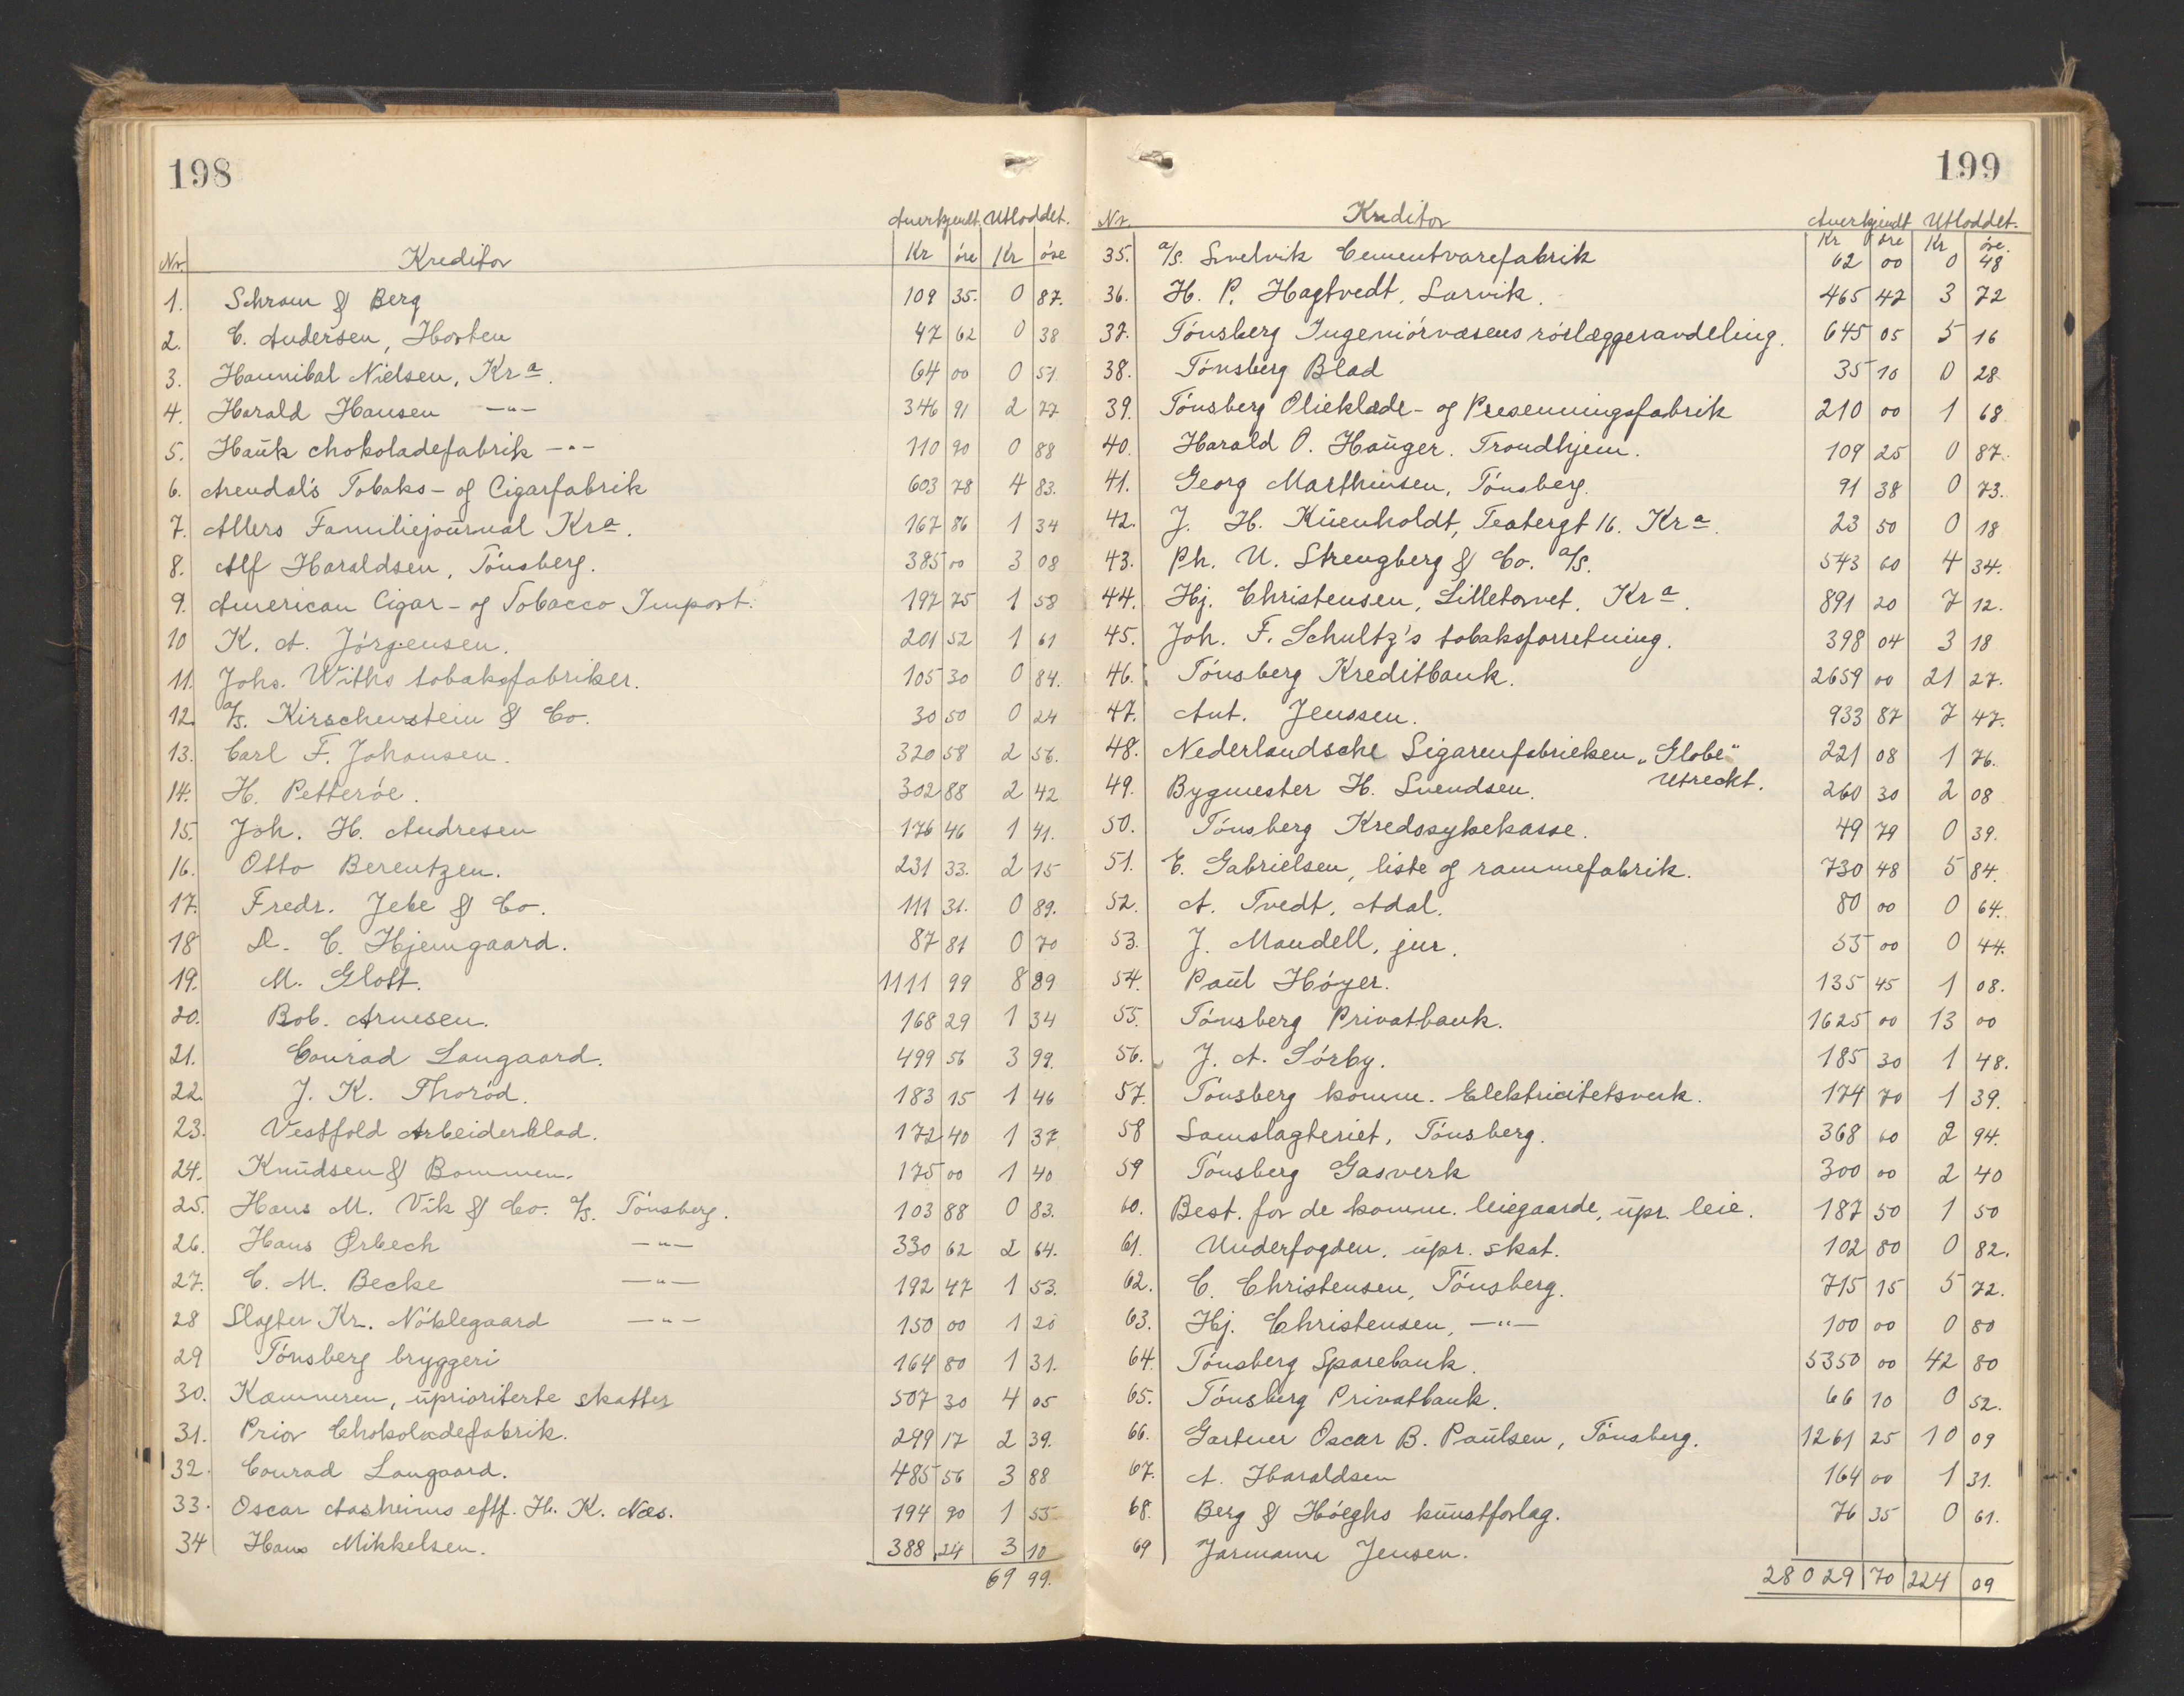 198
Anerkjendt. Utloddet.
Nr. Kreditor Kr øre Kr øre
1. Schram & Berg 109 35. 0 87.
2. C. Andersen, Horten 47 62 0 38
3. Hannibal Nielsen, Kra. 64 00 0 51
4. Harald Hansen —"— 346 91 2 77
5. Hauk chokoladefabrik —"— 110 90 0 88
6. Arendal's Tobaks- og Cigarfabrik 603 78 4 83.
7. Allers Familiejournal Kra. 167 86 1 34
8. Alf Haraldsen, Tønsberg. 385 00 3 08
9. American Cigar- og Tobacco Import. 197 75 1 58
10 K. A. Jørgensen. 201 52 1 61
11. Johs. Withs tobaksfabriker. 105 30 0 84.
12. a/s. Kirschenstein & Co. 30 50 0 24
13. Carl F. Johansen. 320 58 2 56.
14. H. Petterøe. 302 88 2 42
15. Joh. H. Andresen 176 46 1 41.
16. Otto Berentzen. 231 33. 2 15
17. Fredr. Jebe & Co. 111 31. 0 89.
18 D. C. Hjemgaard. 87 81 0 70
19. M. Glott. 1111 99 8 89
20. Bob. Arnesen. 168 29 1 34
21. Conrad Langaard. 499 56 3 99.
22. J. K. Thorød. 183 15 1 46
23. Vestfold Arbeiderblad. 172 40 1 37
24. Knudsen & Bommen. 175 00 1 40
25. Hans M. Vik & Co. a/s. Tønsberg. 103 88 0 83.
26. Hans Ørbech —"— 330 62 2 64.
27. C. M. Becke —"— 192 47 1 53.
28 Slagter Kr. Nöklegaard —"— 150 00 1 20
29 Tønsberg bryggeri 164 80 1 31.
30. Kæmneren, uprioriterte skatter 507 30 4 05
31. Prior Chokoladefabrik. 299 17 2 39.
32. Conrad Langaard. 485 56 3 88
33. Oscar Aasheims eftf. H. K. Næs. 194 90 1 55
34 Hans Mikkelsen. 388 24 3 10
69 99.
199
Nr. Kreditor Anerkjendt Utloddet.
Kr øre Kr øre.
35. a/s. Svelvik Cementvarefabrik 62 00 0 48
36. H. P. Hagtvedt, Larvik. 465 47 3 72
37. Tønsberg Ingeniørvæsens rørlæggeravdeling. 645 05 5 16
38. Tønsberg Blad 35 10 0 28
39. Tønsberg Olieklæde- og Presenningsfabrik 210 00 1 68
40. Harald O. Hauger. Trondhjem. 109 25 0 87.
41. Georg Marthinsen, Tønsberg. 91 38 0 73.
42. J. H. Küenholdt, Teatergt 16. Kra. 23 50 0 18
43. Ph. U. Strengberg & Co. a/s. 543 60 4 34.
44. Hj. Christensen, Lilletorvet, Kra. 891 20 7 12.
45. Joh. F. Schultz's tobaksforretning. 398 04 3 18
46. Tønsberg Kreditbank. 2659 00 21 27.
47. Ant. Jenssen. 933 87 7 47.
48. Nederlandsche Sigarenfabrieken „Globe" 221 08 1 76.
Utreckt.
49. Bygmester H. Svendsen. 260 30 2 08
50. Tønsberg Kredssykekasse. 49 79 0 39.
51. E. Gabrielsen, liste og rammefabrik. 730 48 5 84.
52. A. Tvedt, Adal. 80 00 0 64.
53. J. Mandell, jur. 55 00 0 44.
54. Paul Høyer. 135 45 1 08.
55. Tønsberg Privatbank. 1625 00 13 00
56. J. A. Sørby. 185 30 1 48.
57. Tønsberg komm. Elektricitetsverk. 174 70 1 39.
58 Samslagteriet, Tønsberg. 368 60 2 94.
59 Tønsberg Gasverk 300 00 2 40
60. Best. for de komm. leiegaarde, upr. leie. 187 50 1 50
61. Underfogden, upr. skat. 102 80 0 82.
62. C. Christensen, Tønsberg. 715 15 5 72.
63. Hj. Christensen, —"— 100 00 0 80
64. Tønsberg Sparebank. 5350 00 42 80
65. Tønsberg Privatbank. 66 10 0 52.
66. Gartner Oscar B. Paulsen, Tønsberg. 1261 25 10 09
67. A. Haraldsen 164 00 1 31.
68. Berg & Høeghs kunstforlag. 76 35 0 61.
69 Jarmann Jensen.
28029 70 224 09